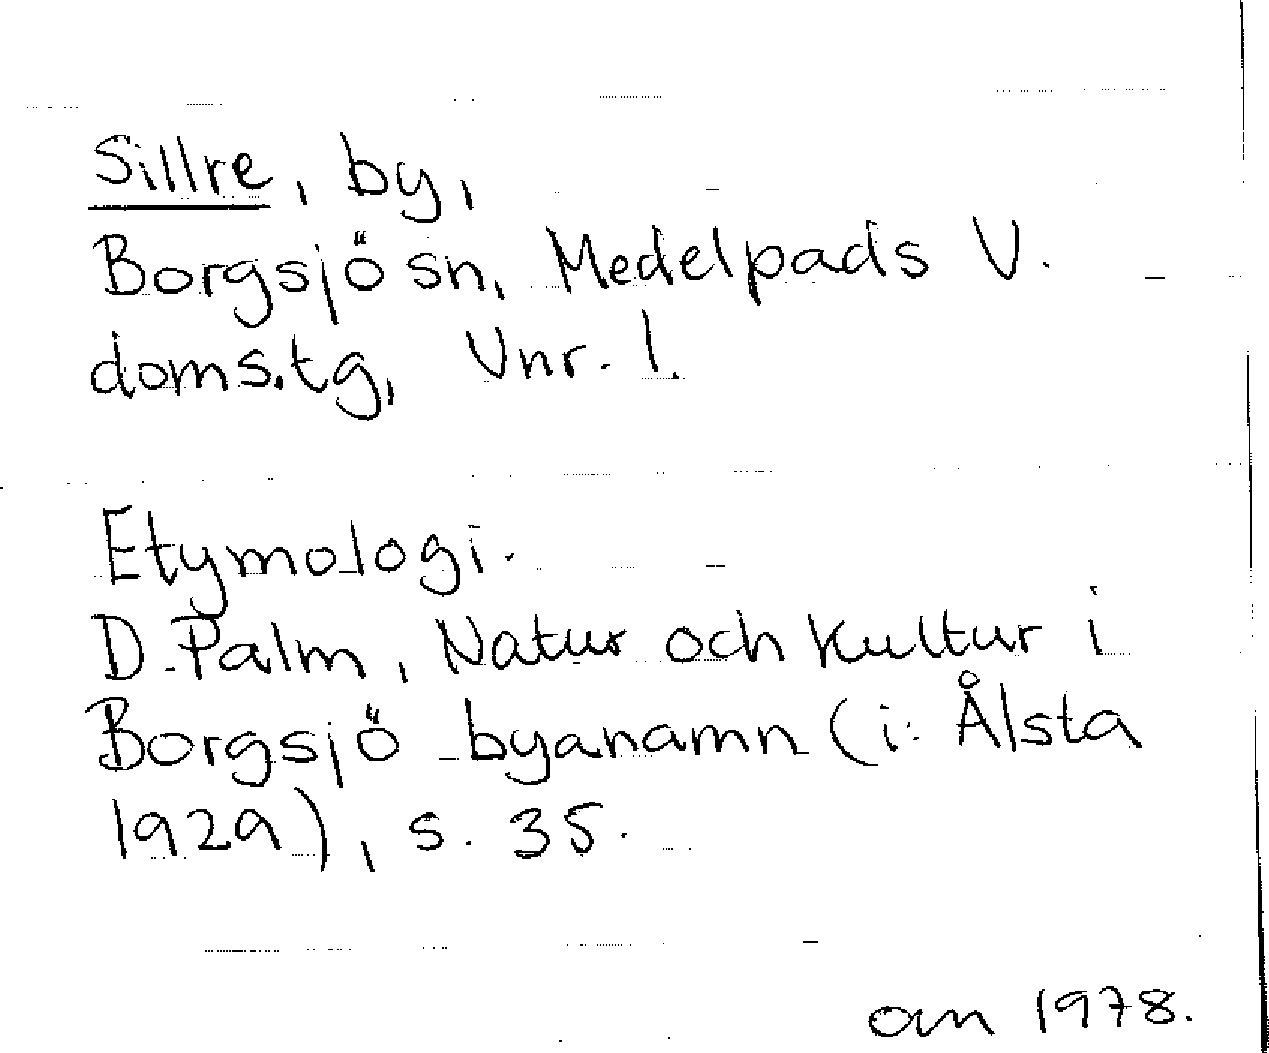 Sillre, by,
Borgsjö sn, Medelpads V.
doms.tg, Vnr. 1.
Etymologi.
D. Palm, Natur och kultur i
Borgsjö byanamn (i: Ålsta
1929), s. 35.
om 1978.